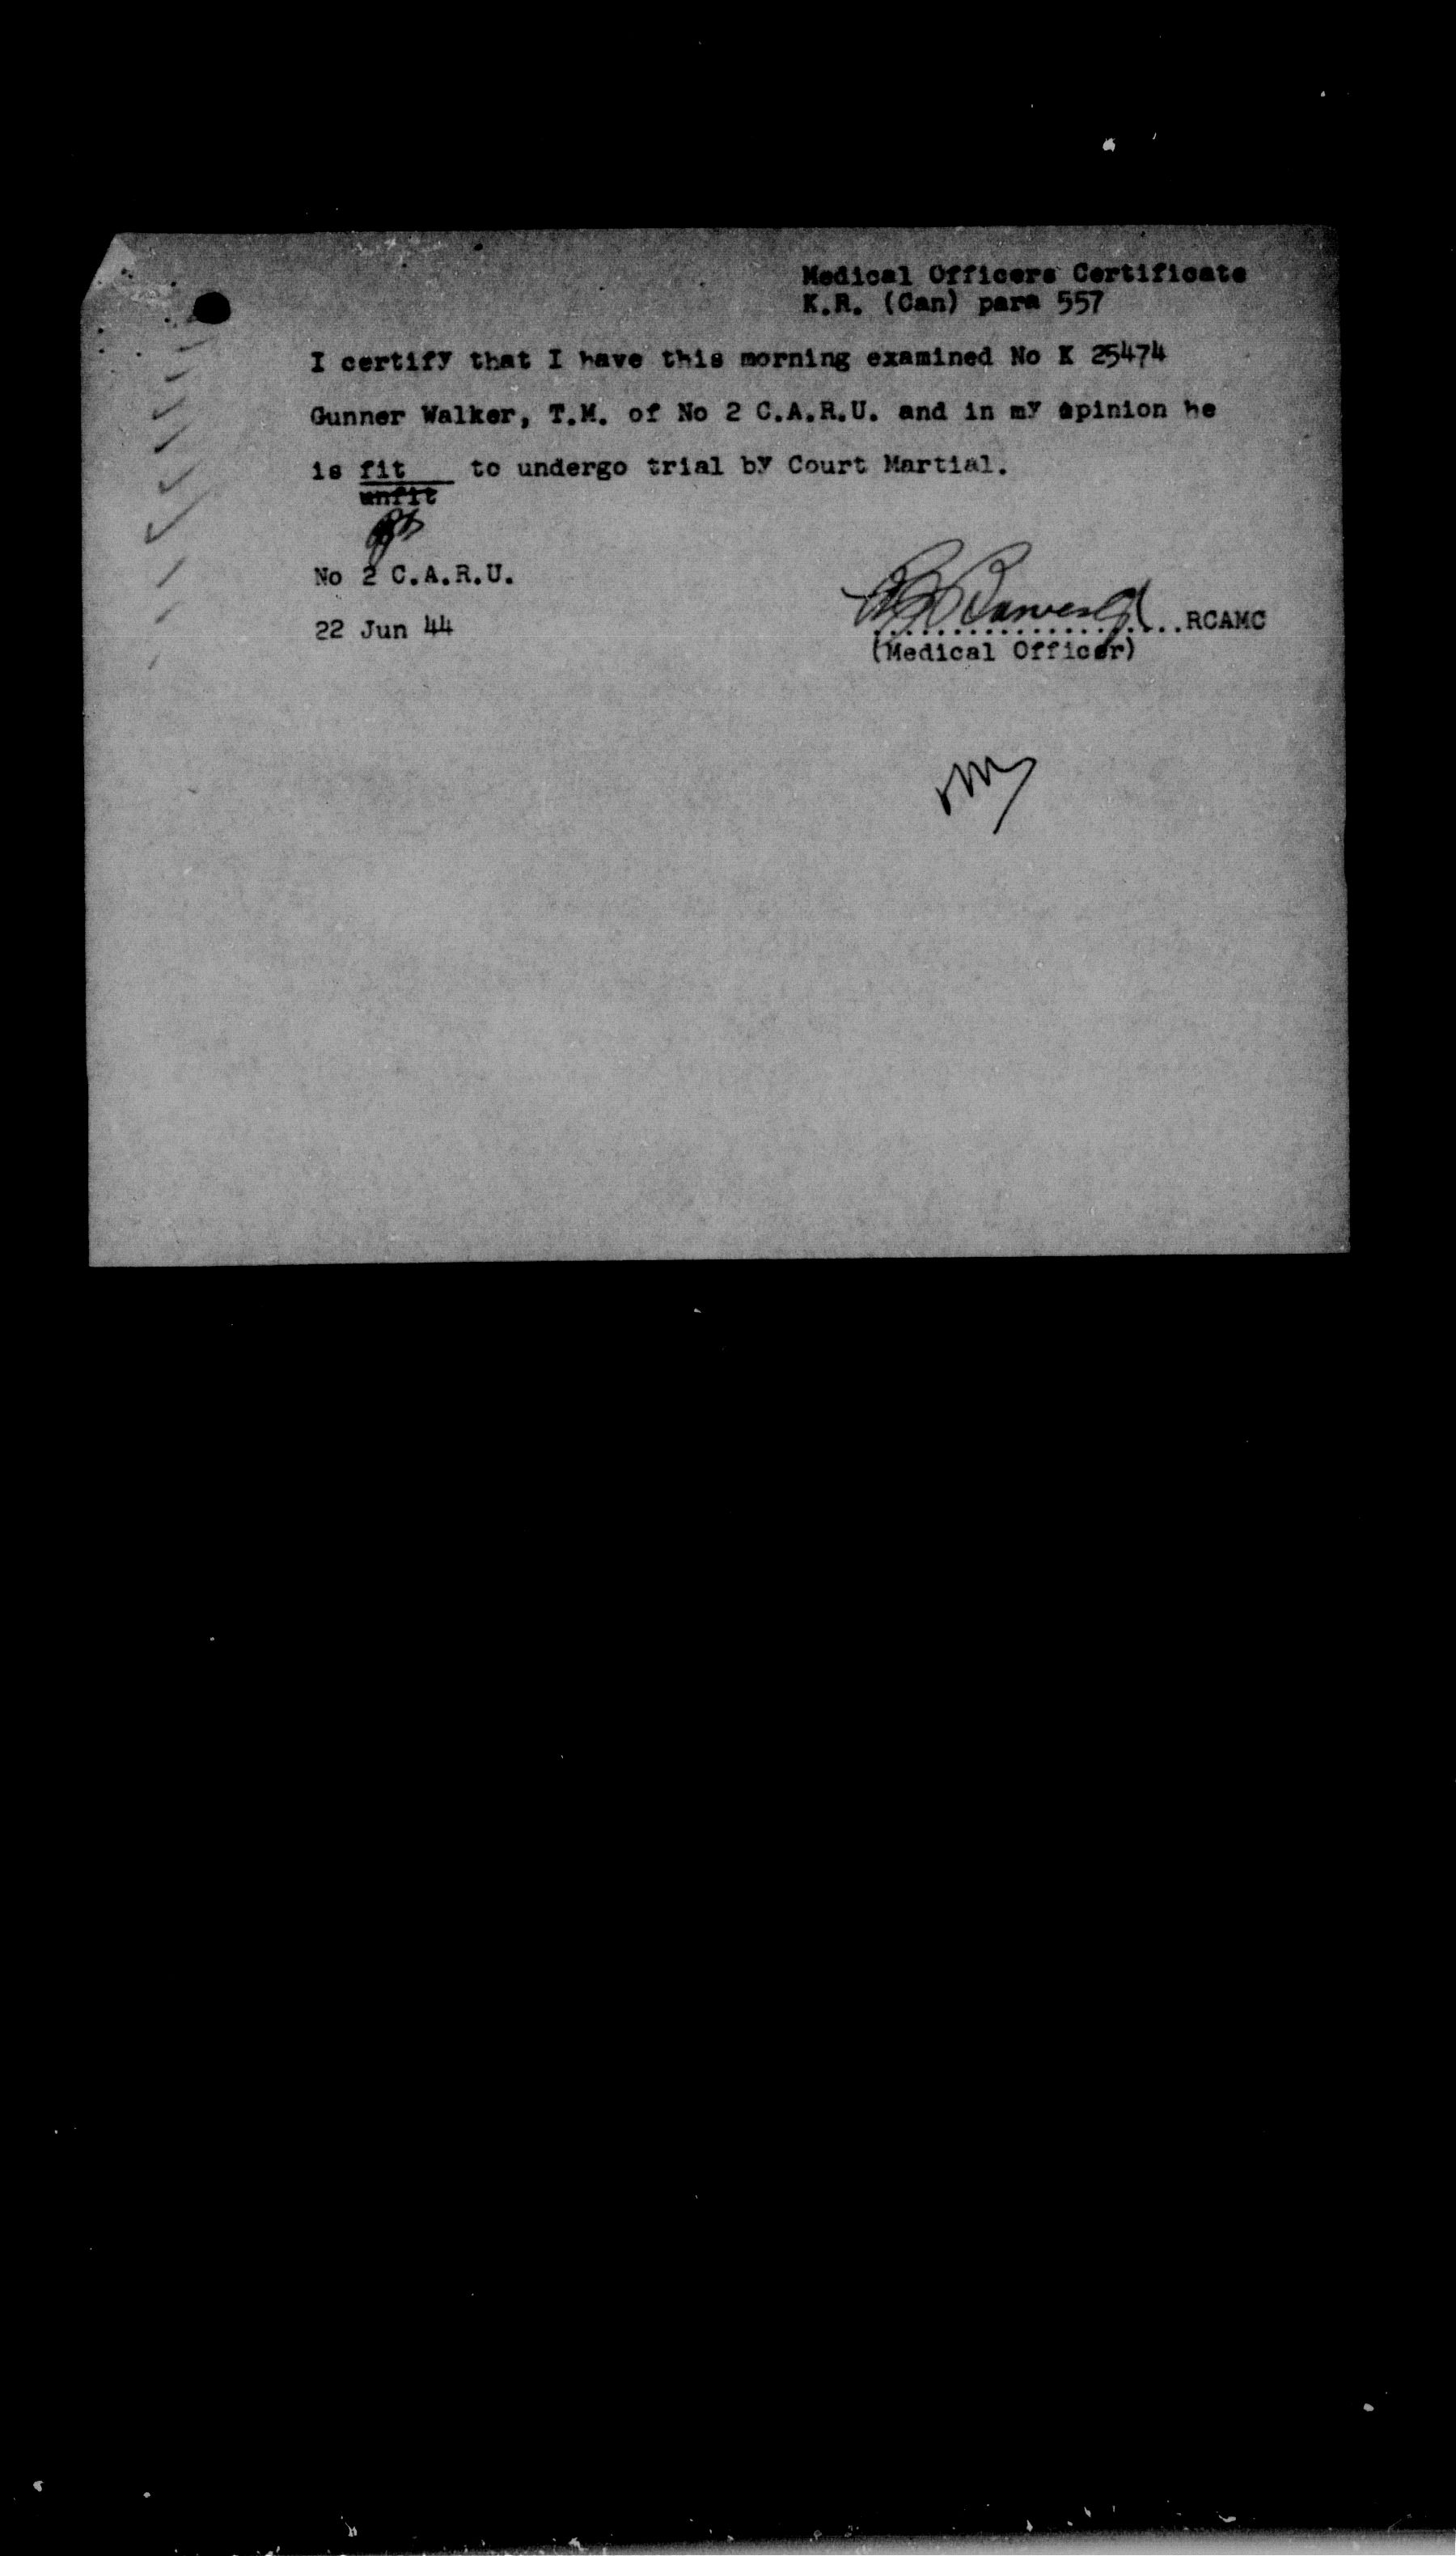 Medical Officers Certificate
K.R. (Can) para 557
I certify that I have this morning examined No K 25474
Gunner Walker, T.M. of No 2 C.A.R.U. and in my opinion he
is fit to undergo trial by Court Martial.
unfit
No 2 C.A.R.U.
22 Jun 44
....................RCAMC
(Medical Officer)